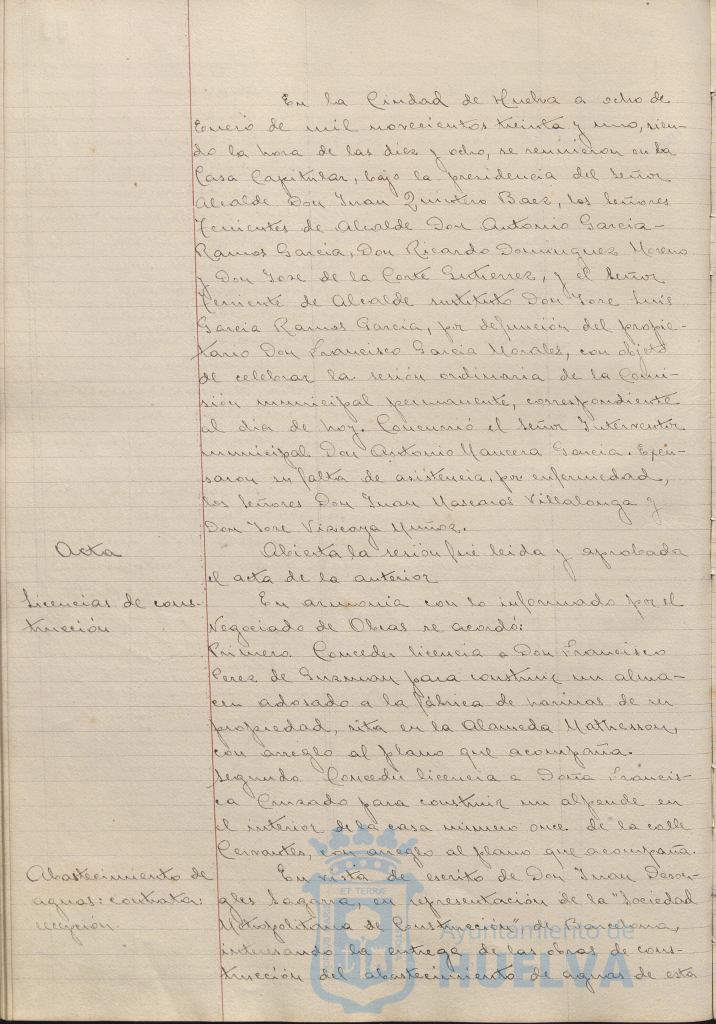 En la Ciudad de Huelva a ocho de
Enero de mil novecientos treinta y uno, sien-
do la hora de las diez y ocho, se reunieron en la
Casa Capitular, bajo la presidencia del Señor
Alcalde Don Juan Quintero Baez, los Señores
Tenientes de Alcalde Don Antonio Garcia-
Ramos Garcia, Don Ricardo Dominguez Moreno
y Don Jose de la Corte Gutierrez, y el Señor
Teniente de Alcalde sustituto Don Jose Luis
Garcia Ramos Garcia, por defunción del propie-
tario Don Francisco Garcia Morales, con objeto
de celebrar la sesión ordinaria de la Comi-
sión municipal permanente, correspondiente
al dia de hoy. Concurrió el Señor Interventor
municipal Don Antonio Mancera Garcia. Excu-
saron su falta de asistencia, por enfermedad,
los Señores Don Juan Mascaros Villalonga y
Don Jose Vizcaya Muñoz.
Acta
Abierta la sesión fué leida y aprobada
el acta de la anterior
Licencias de cons-
trucción
En armonia con lo informado por el
Negociado de Obras se acordó:
Primero. Conceder licencia a Don Francisco
Perez de Guzman para construir un alma-
cen adosado a la fábrica de harinas de su
propiedad, sita en la Alameda Mathesson,
con arreglo al plano que acompaña.
Segundo. Conceder licencia a Doña Francis-
ca Cruzado para construir un alpende en
el interior de la casa número once de la calle
Cervantes, con arreglo al plano que acompaña.
Abastecimiento de
aguas: contrata:
recepción.
En vista de escrito de Don Juan
Sagarra, en representación de la "Sociedad
Metropolitana de Construcción" de Barcelona,
interesando la entrega de las obras de cons-
trucción del abastecimiento de aguas de esta
Ayuntamiento de
HUELVA